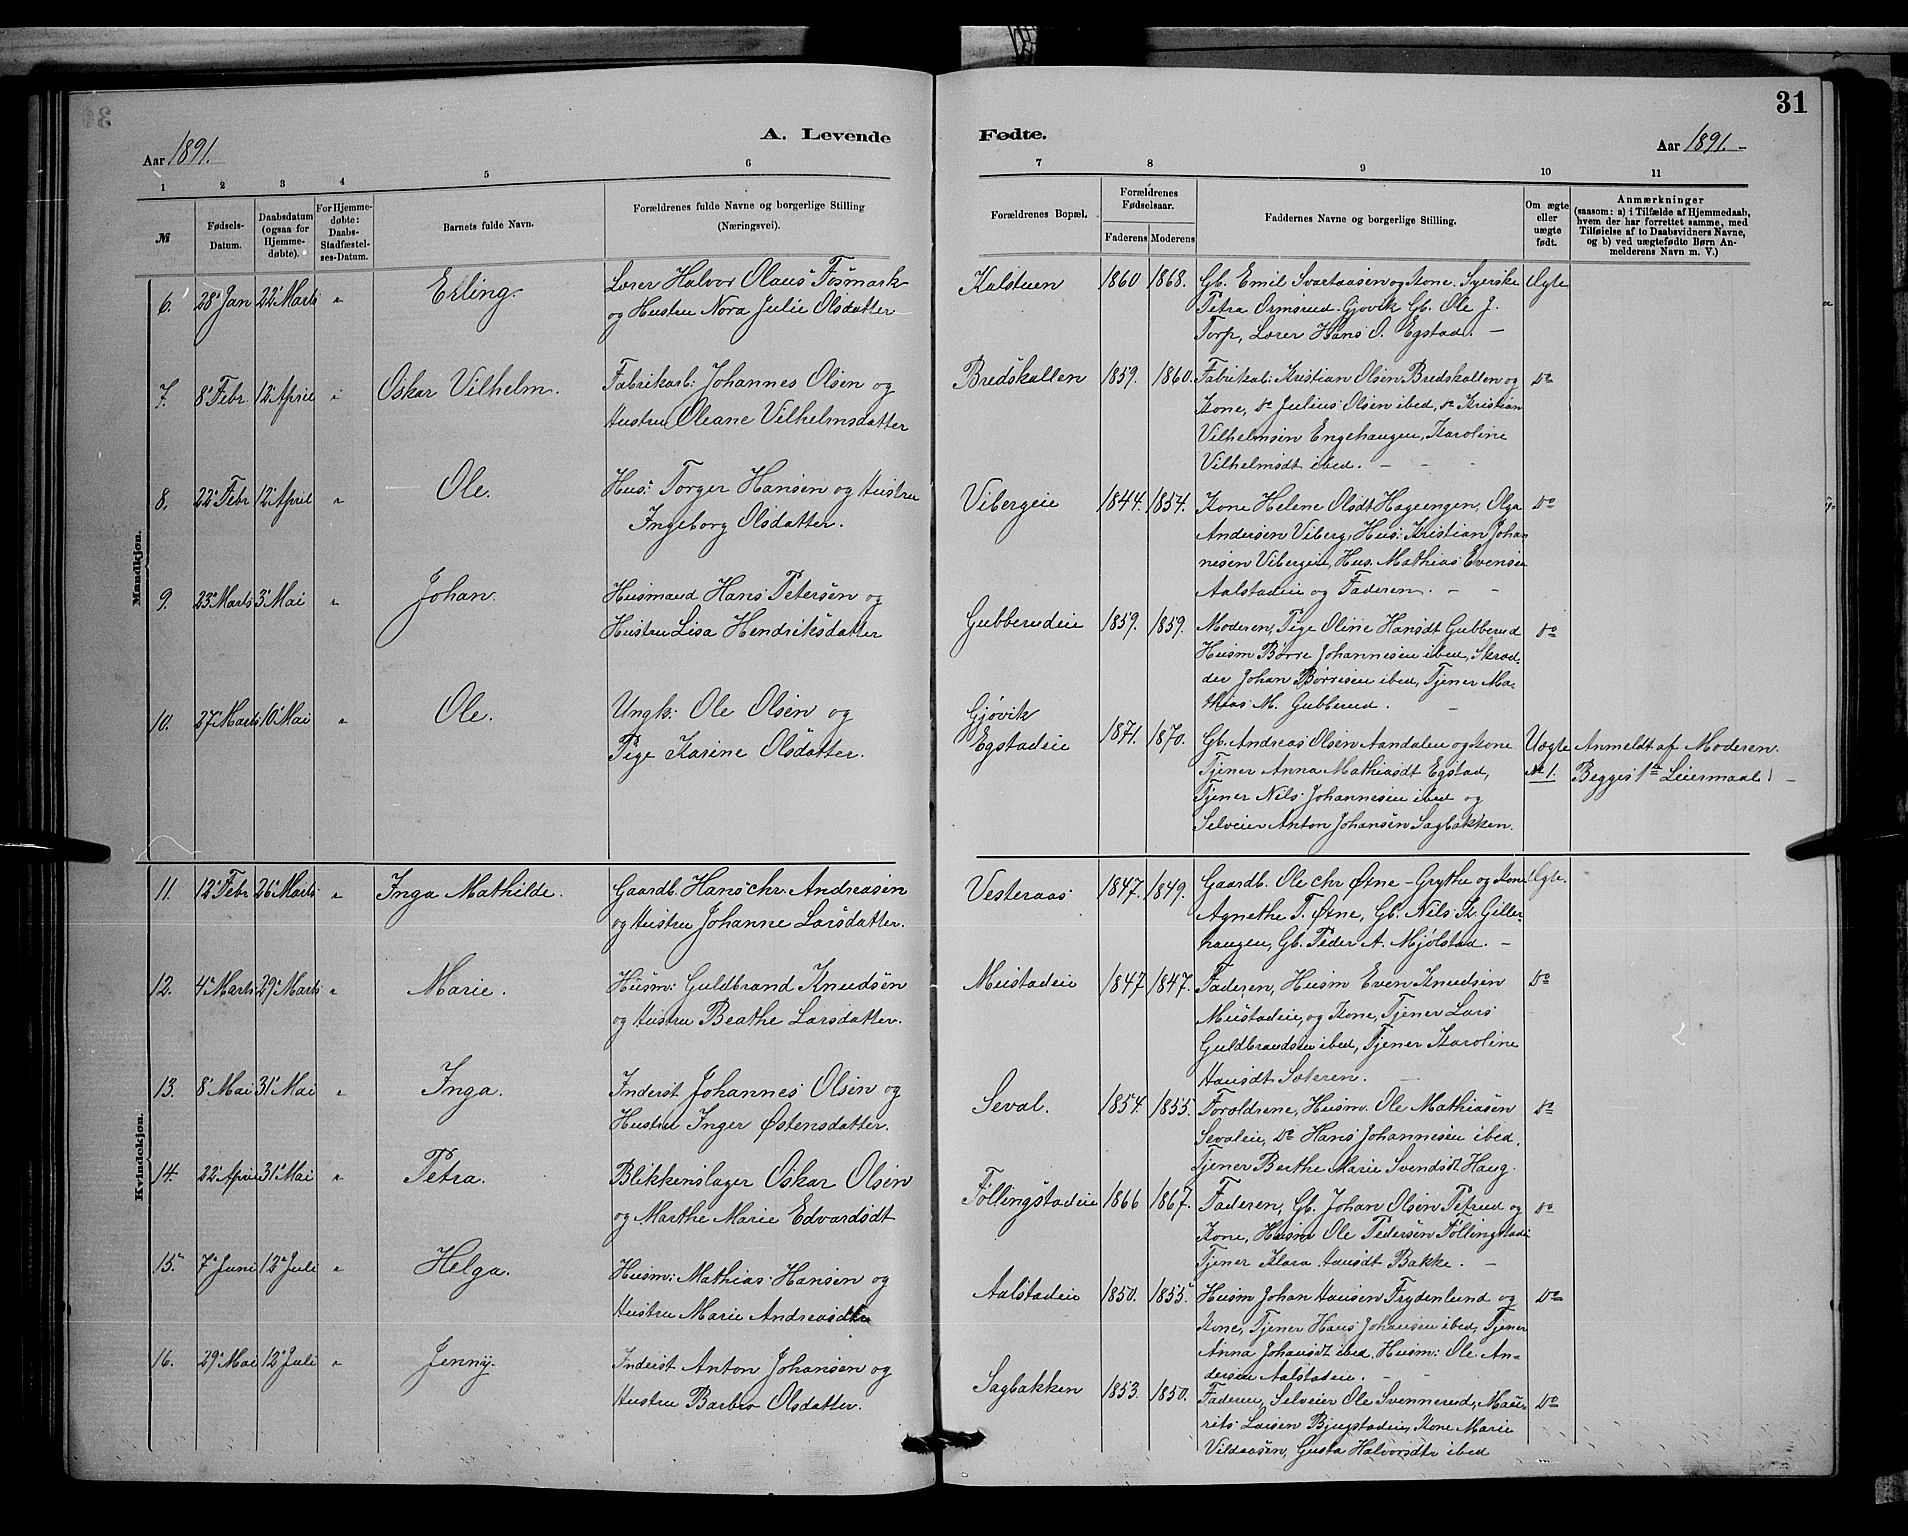 31
A. Levende Fødte.
Aar 1891.
Aar 1891.
1 2 3 4 5 6 7 8 9 10 11
№
Fødsels-Datum.
Daabsdatum (ogsaa for Hjemme-døbte).
For Hjemme-døbte: Daabs-Stadfæstel-ses-Datum.
Barnets fulde Navn.
Forældrenes fulde Navne og borgerlige Stilling (Næringsvei).
Forældrenes Bopæl.
Forældrenes Fødselsaar.
Faderens Moderens
Faddernes Navne og borgerlige Stilling.
Om ægte eller uægte født.
Anmærkninger
(saasom: a) i Tilfælde af Hjemmedaab,
hvem der har forrettet samme, med
Tilføielse af to Daabsvidners Navne,
og b) ved uægtefødte Børn An-
melderens Navn m. V.)
Mandkjøn.
6. 28 Jan 22 Marts " Erling. Lærer Halvor Olaus Fosmark
og Hustru Nora Julie Olsdatter
Kalstuen 1860 1868. Gb. Emil Svartaasen og Kone. Syerske Ægte
Petra Ormsrud Gjøvik Gb. Ole J.
Torp, Lærer Hans O. Egstad. —
7. 8 Febr 12 April " Oskar Vilhelm. Fabrikarb: Johannes Olsen og
Hustru Oleane Vilhelmsdatter
Bredskallen 1859. 1860. Fabrikab: Kristian Olsen Bredskallen og Do
Kone, do Julius Olsen ibed, do Kristian
Vilhelmsen Engehaugen, Karoline
Vilhelmsdt ibed. — - -
8. 22 Febr 12 April " Ole. Hus: Torger Hansen og Hustru
Ingeborg Olsdatter.
Vibergeie 1844. 1854. Kone Helene Olsdt Hageengen, Olga Do
Andersen Viberg, Hus: Kristian Johan
nesen Vibergeie, Hus. Mathias Evensen
Aalstadeie og Faderen. - -
9. 23 Marts 3 Mai " Johan. Husmand Hans Petersen og
Hustru Lisa Hendriksdatter
Gubberudeie 1859. 1859. Moderen, Pige Oline Hansdt Gubberud Do
Husm Børre Johannesen ibed, Skræd-
der Johan Børresen ibed, Tjener Ma-
thias M. Gubberud. —
10. 27 Marts 10 Mai " Ole. Ungk: Ole Olsen og
Pige Karine Olsdatter.
Gjøvik
Egstadeie 1871. 1870. Gb. Andreas Olsen Aandalen og Kone Uægte Anmeldt af Moderen.
Tjener Anna Mathiasdt Egstad, № 1. Begges 1ste Leiermaal. —
Tjener Nils Johannesen ibed og
Selveier Anton Johansen Sagbakken.
Kvindekjøn.
11. 12 Febr 26 Marts " Inga Mathilde. Gaardb. Hans Chr. Andreasen
og Hustru Johanne Larsdatter.
Vesteraas 1847. 1849. Gaardb. Ole Chr Øtne-Grythe og Kone Ægte.
Agnethe T. Øtne, Gb. Nils K. Giller-
haugen, Gb. Peder A. Mjølstad. —
12. 4 Marts 29 Marts " Marie. Husm: Guldbrand Knudsen
og Hustru Beathe Larsdatter.
Mustadeie 1847 1847. Faderen, Husm Even Knudsen Do
Mustadeie, og Kone, Tjener Lars
Guldbrandsen ibed, Tjener Karoline
Hansdt Sæteren. —
13. 8 Mai 31 Mai " Inga. Inderst Johannes Olsen og
Hustru Inger Østensdatter.
Seval. 1854. 1855. Forældrene, Husm. Ole Mathiasen Do
Sevaleie, Do Hans Johannesen ibed,
Tjener Berthe Marie Svendsdt Haug.
14. 22 April 31 Mai " Petra. Blikkenslager Oskar Olsen
og Marthe Marie Edvardsdt
Føllingstadeie 1866 1867. Faderen, Gb. Johan Olsen Petrud og Do
Kone, Husm Ole Pedersen Føllingstad:
Tjener Klara Hansdt Bakke. —
15. 7 Juni 12 Juli " Helga. Husm: Mathias Hansen og
Hustru Marie Andreasdtr
Aalstadeie 1850. 1855. Husm Johan Hansen Frydenlund og Do
Kone, Tjener Hans Johansen ibed, Tjener
Anna Johansdt ibed, Husm: Ole An-
dersen Aalstadeie. — -
16. 29 Mai 12 Juli " Jenny. Inderst Anton Johansen og
Hustru Barbro Olsdatter.
Sagbakken 1853. 1850. Faderen, Selveier Ole Svennerud, Mau- Do
rits Larsen Bjugstadeie, Kone Marie
Vildaasen, Gusta Halvorsdtr ibed